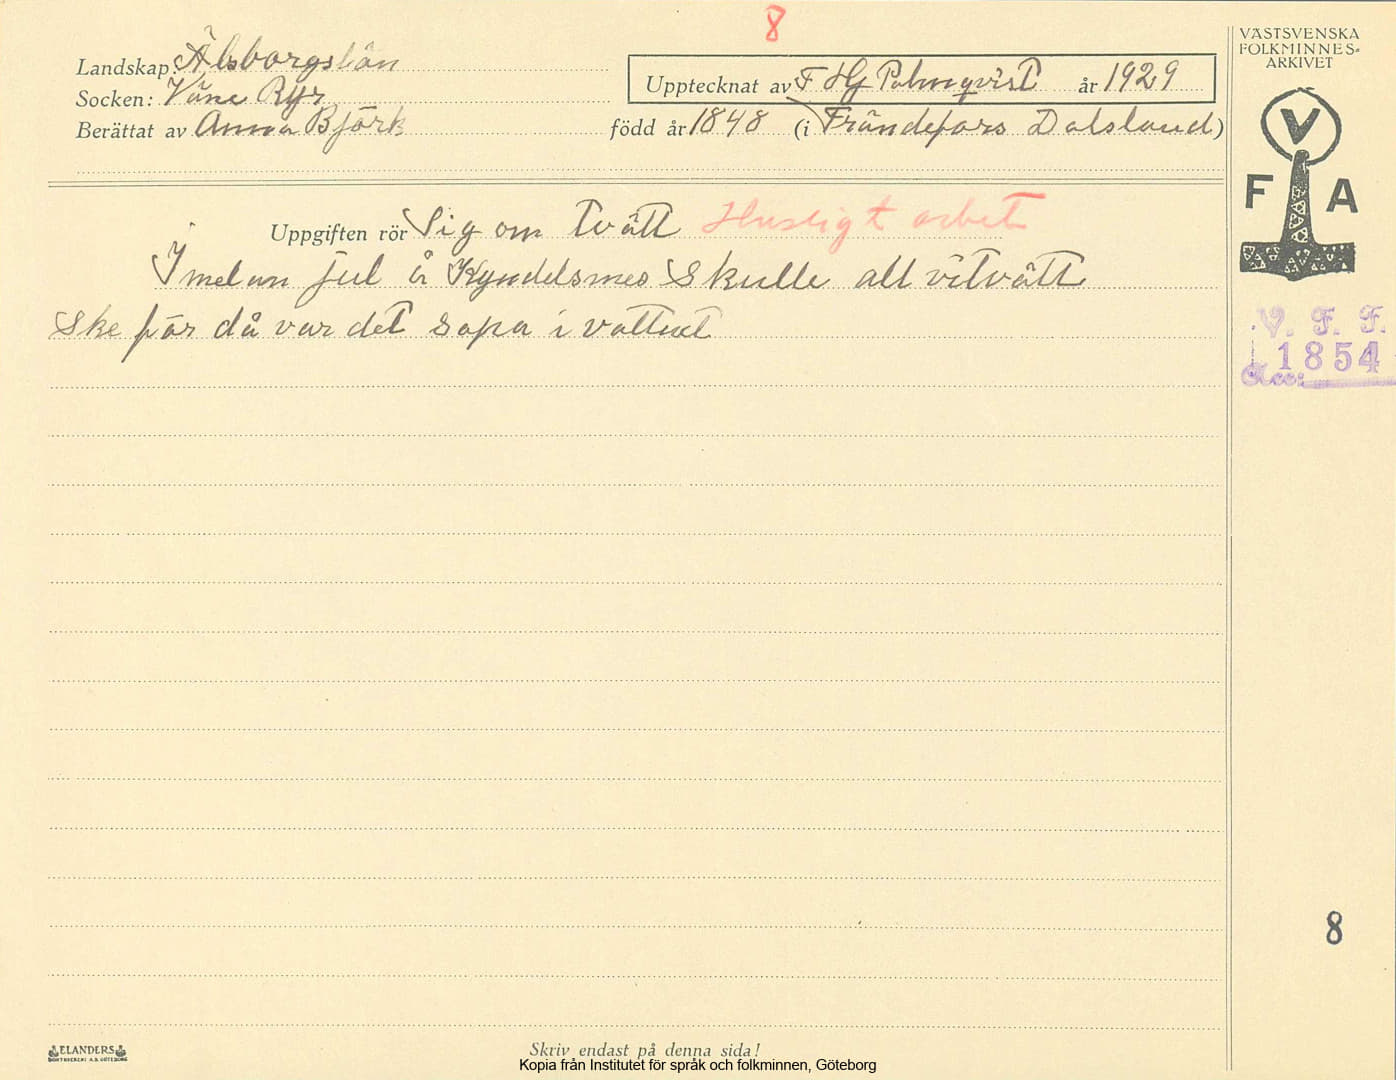 8
VÄSTSVENSKA
FOLKMINNES-
ARKIVET
Landskap: Älsborgslän
Upptecknat av F Hj Palmqvist år 1929
Socken: Väne Ryr
Berättat av Anna Björk född år 1848 (i Frändefors Dalsland)
V
F A
Uppgiften rör Sig om tvätt Husligt arbet
Imelan jul å Kyndelsmes Skulle all vitvätt
Ske för då var det sapa i vattnet
V. F. F.
1854
Acc:
8
ELANDERS
BOKTRYCKERI A.B. GÖTEBORG
Skriv endast på denna sida!
Kopia från Institutet för språk och folkminnen, Göteborg